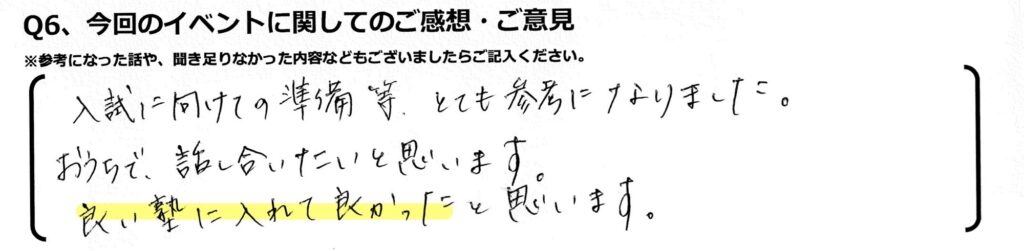 Q6、今回のイベントに関してのご感想・ご意見
※参考になった話や、聞き足りなかった内容などもございましたらご記入ください。
入試に向けての準備等、とても参考になりました。
おうちで、話し合いたいと思います。
良い塾に入れて良かったと思います。